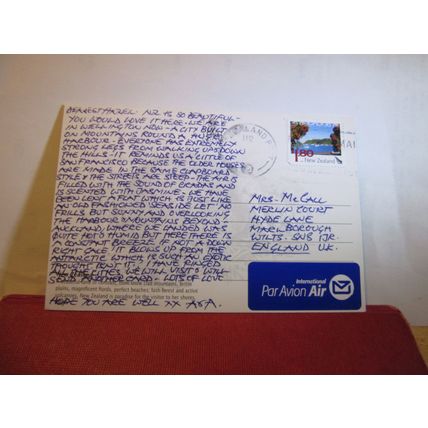 DEAREST HAZEL: N.Z. IS SO BEAUTIFUL -
YOU WOULD LOVE IT HERE. WE ARE
IN WELLINGTON NOW - A CITY BUILT
ON MOUNTAINS ROUND A HUGE
HARBOUR - EVERYONE HAS EXTREMELY
STRONG LEGS FROM WALKING UP & DOWN
THE HILLS - IT REMINDS US A LITTLE OF
SAN FRANCISCO BECAUSE THE OLDER HOUSES
ARE MADE IN THE SAME CLAPBOARD
STYLE & THE STREETS ARE STEEP. THE AIR IS
FILLED WITH THE SOUND OF CICADAS AND
IS SCENTED WITH JASMINE. WE HAVE
BEEN LENT A FLAT WHICH IS JUST LIKE
AN OLD FASHIONED SEASIDE LET NO
FRILLS BUT SUNNY AND OVERLOOKING
THE HARBOUR & MOUNTAINS BEYOND -
AUCKLAND WHERE WE LANDED WAS
QUITE HOT & HUMID BUT HERE THERE IS
A CONSTANT BREEZE IF NOT A DOWN
RIGHT GALE IT BLOWS UP FROM THE
ANTARCTIC WHICH IS SUCH AN EXOTIC
THOUGHT
THE CITIES WE WILL VISIT & WILL
SEND ANOTHER CARD - LOTS OF LOVE
HOPE YOU ARE WELL XX
plains, magnificent fiords, perfect beaches, lush forest and active
New Zealand is paradise for the visitor to her shores.
1.80
New Zealand
MRS. MCCALL
MERLIN COURT
HYDE LANE
MARLBOROUGH
WILTS.
ENGLAND UK.
International
Par Avion Air